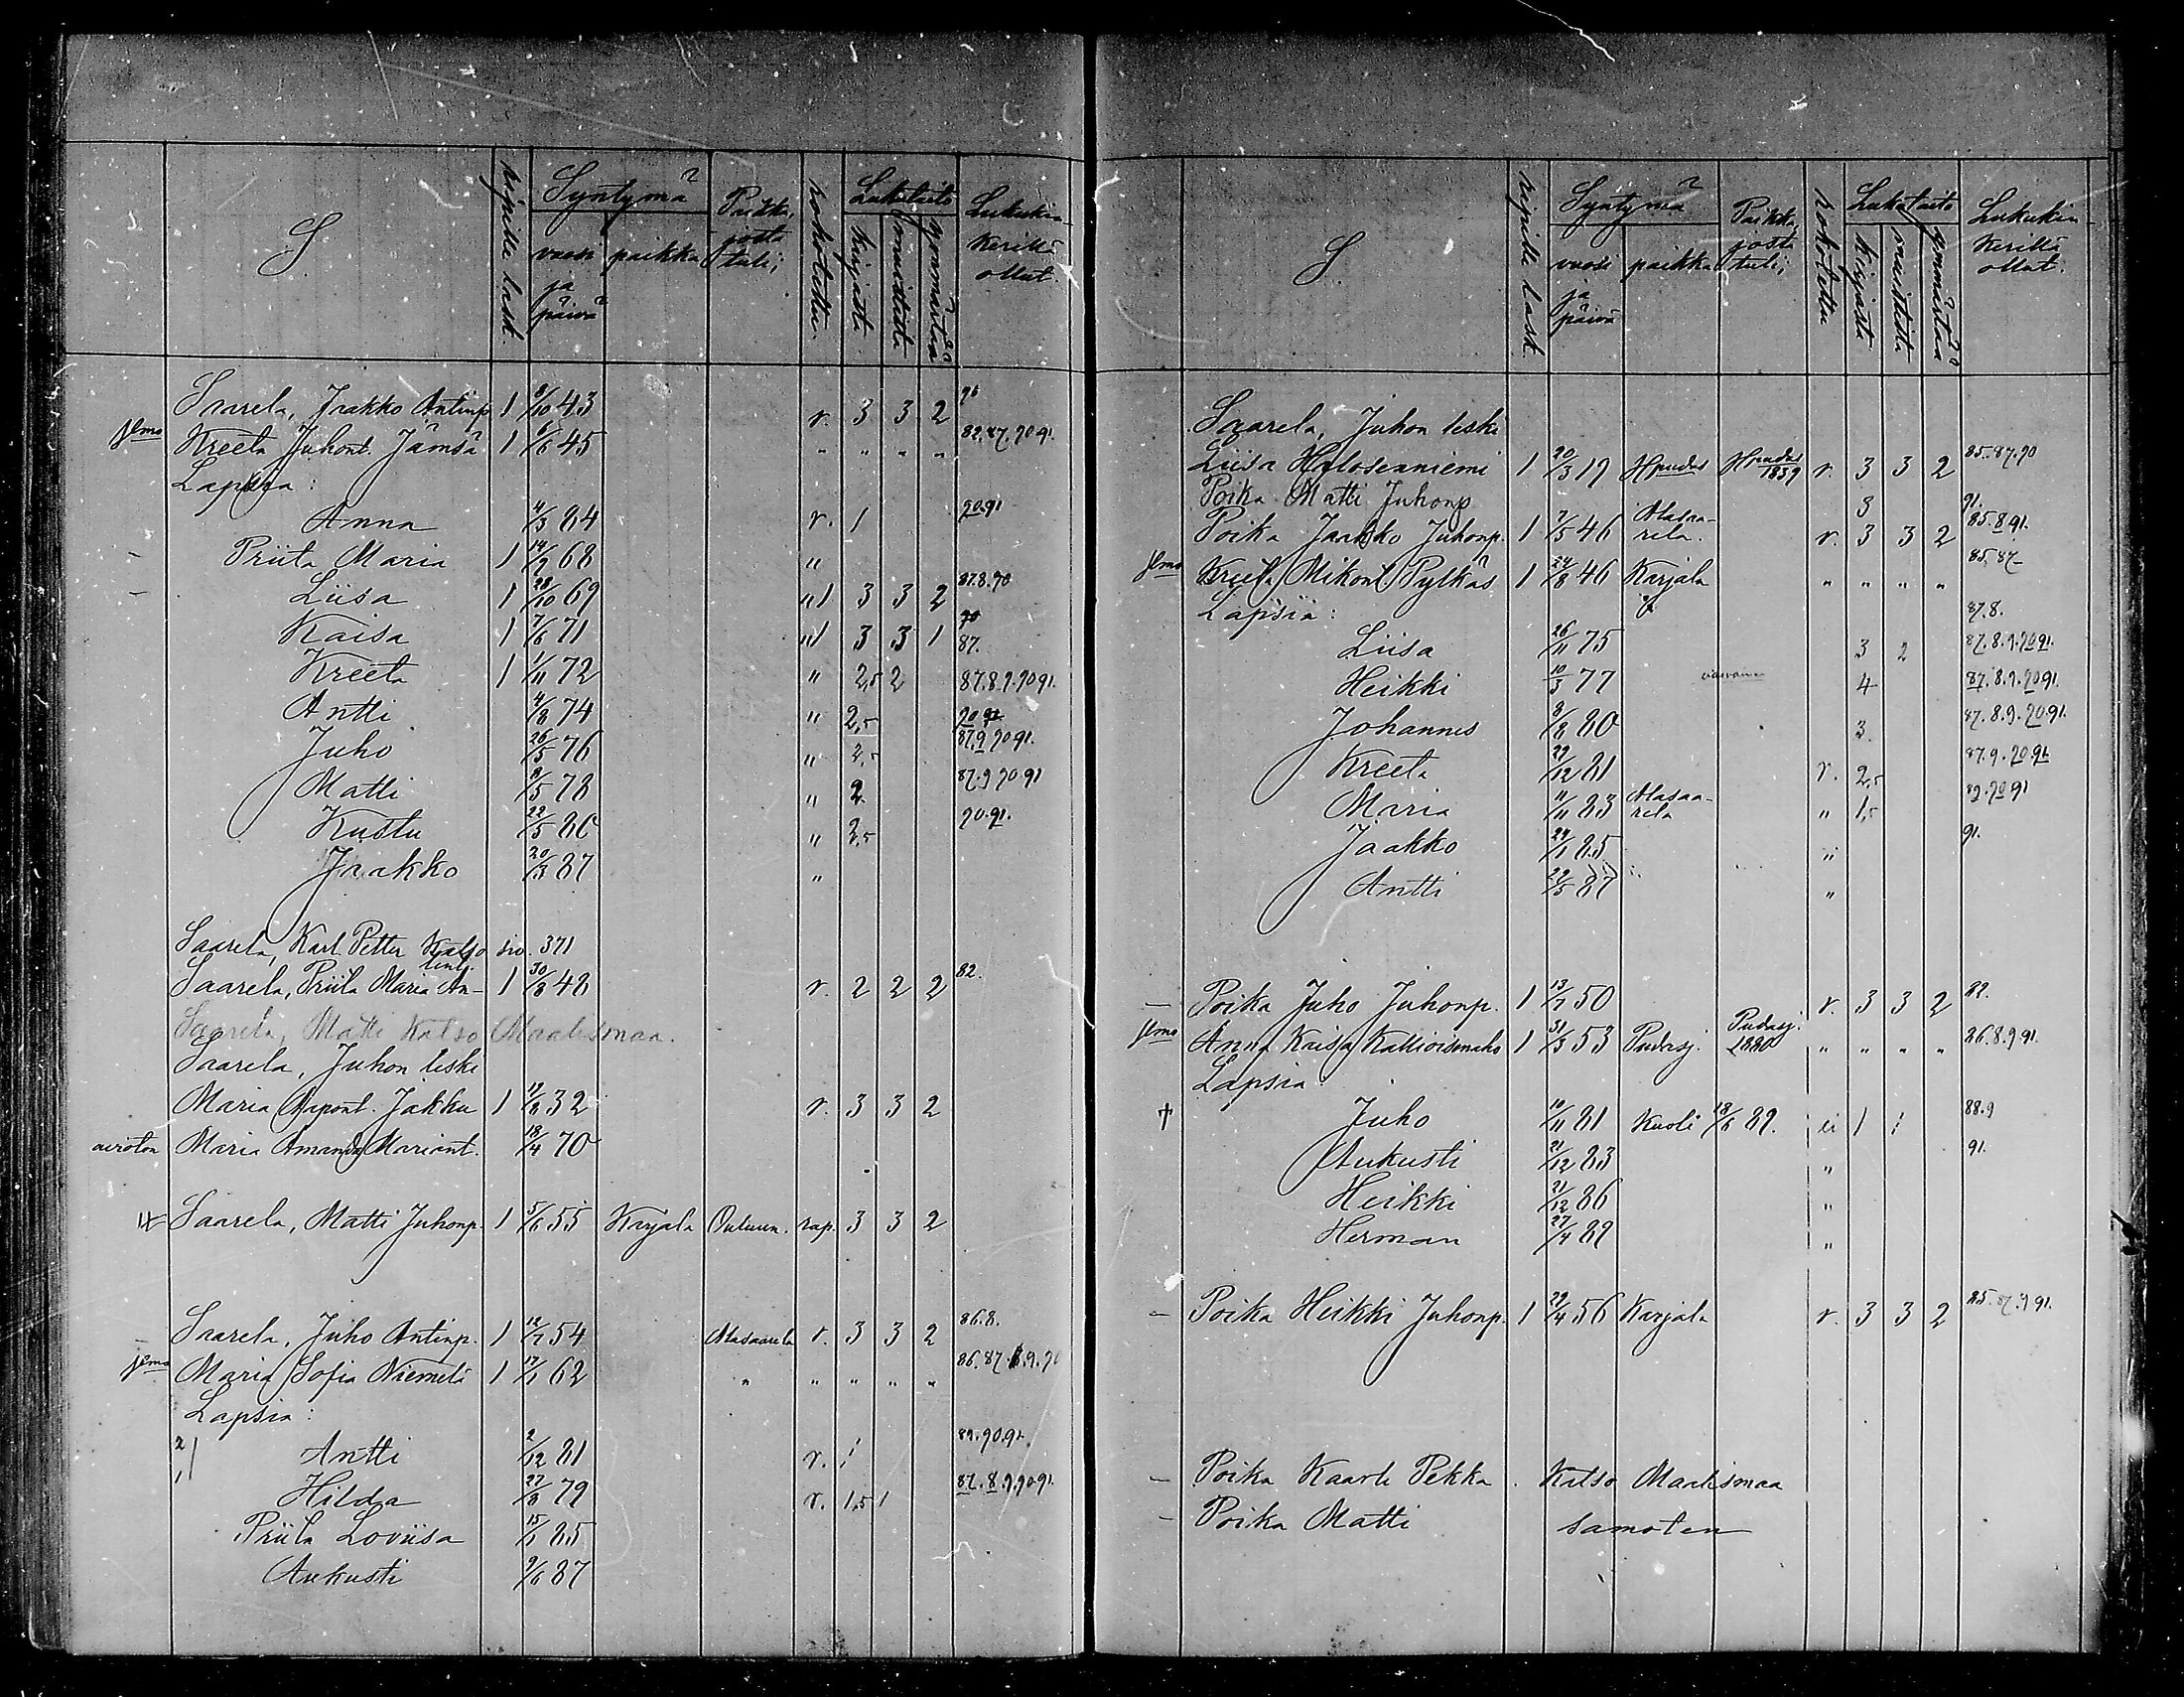 S
ripille lask.
Syntymä
vuosi ja päivä
paikka
Paikka, josta tuli;
rokotettu
Lukutaito
kirjasta
muistista
ymmärtää
Lukukin-
kerillä
ollut.
Saarela, Jaakko Antinp. 1 8/10 43 r. 3 3 2
Kreeta Juhont. Jämsä 1 6/6 45 " " " " 82. 87. 90 91.
Lapsia:
Anna 4/3 84 r. 1 90.91
– Priita Maria 1 14/2 68 "
– Liisa 1 28/10 69 " 1 3 3 2 87.8.90
Kaisa 1 7/6 71 " 1 3 3 1 87.
Kreeta 1 1/11 72 " 2,5 2 87.8.9.90 91.
Antti 4/8 74 " 2,5
Juho 26/5 76 " 2,5 87.9 90 91.
Matti 8/5 78 " 2 87.9 90 91
Kustu 22/5 86 " 2,5 90.91.
Jaakko 20/3 87 "
Saarela, Karl Petter Katso siv. 371
Saarela, Priita Maria An- 1 30/8 48 r. 2 2 2 82.
Saarela, Matti Katso Maalismaa.
Saarela, Juhon leski
Maria Aapont. Jakku 1 32 r. 3 3 2
aviöton Maria Amanda Mariant. 18/4 70
Saarela, Matti Juhonp. 1 5/6 55 Karjala Ouluun. rap. 3 3 2
– Saarela, Juho Antinp. 1 12/7 54 Alasaarela r. 3 3 2 86.8.
Maria Sofia Niemelä 1 17/1 62 " " " " " 86. 87. 8.9.90
Lapsia:
2 Antti 2/12 81 r. 1 89.90.91.
1 Hilda 27/8 79 r. 1,5 1 87.8.9.90 91.
Priita Loviisa 15/1 85
Aukusti 9/6 87
S.
ripille lask.
Syntymä
vuosi ja päivä
paikka
Paikka, josta tuli;
rokotettu
Lukutaito
kirjasta
muistista
ymmärtää
Lukukin-
kerillä
ollut.
Saarela, Juhon leski
Liisa Halosenniemi 1 20/3 19 Hpudas Hpudas 1839 r. 3 3 2 85. 87. 90
Poika Matti Juhonp 3 91.
Poika Jaakko Juhonp. 1 7/5 46 Alasaa-
rela. r. 3 3 2
Kreeta Mikont Pylkäs 1 24/8 46 Karjala " " " " 85. 87
Lapsia: 87.8.
Liisa 26/11 75 3 2 87.8.9.90 91.
Heikki 10/3 77 4 87.8.9.90 91.
Johannes 8/8 80 3. 87.8.9.90 91.
Kreeta 29/12 81 r. 2,5 87.9.90.91
Maria 11/11 83 Alasaa-
rela " 1,5 89.90 91
Jaakko 85 " 91.
Antti 29/5 87 "
– Poika Juho Juhonp. 1 13/7 50 r. 3 3 2 82.
Anna Kaisa Kallioisenaho 1 31/3 53 Pudasj. Pudasj. 1880 " " " " 86.8.9 91.
Lapsia:
† Juho 10/11 81 Kuoli 18/6 89. ei 1 1 88.9
Aukusti 21/12 83 " 91.
Heikki 21/12 86 "
Herman 27/4 89 "
– Poika Heikki Juhonp. 1 29/4 56 Karjala r. 3 3 2 85. 87. 9 91.
– Poika Kaarle Pekka. Katso Maalismaa
– Poika Matti samoten